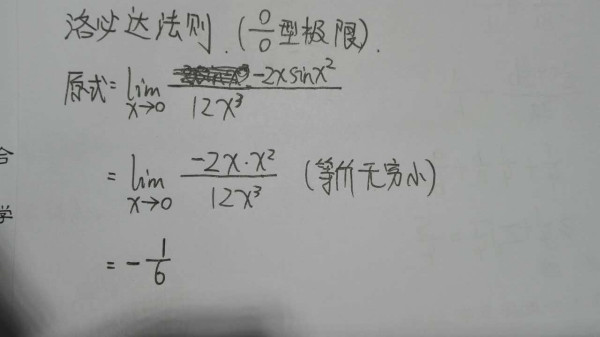 洛必达法则.(0/0型极限).
原式=lim x→0 -2xsinx²/12x³
=lim x→0 -2x·x²/12x³ (等价无穷小)
=-1/6
合
学